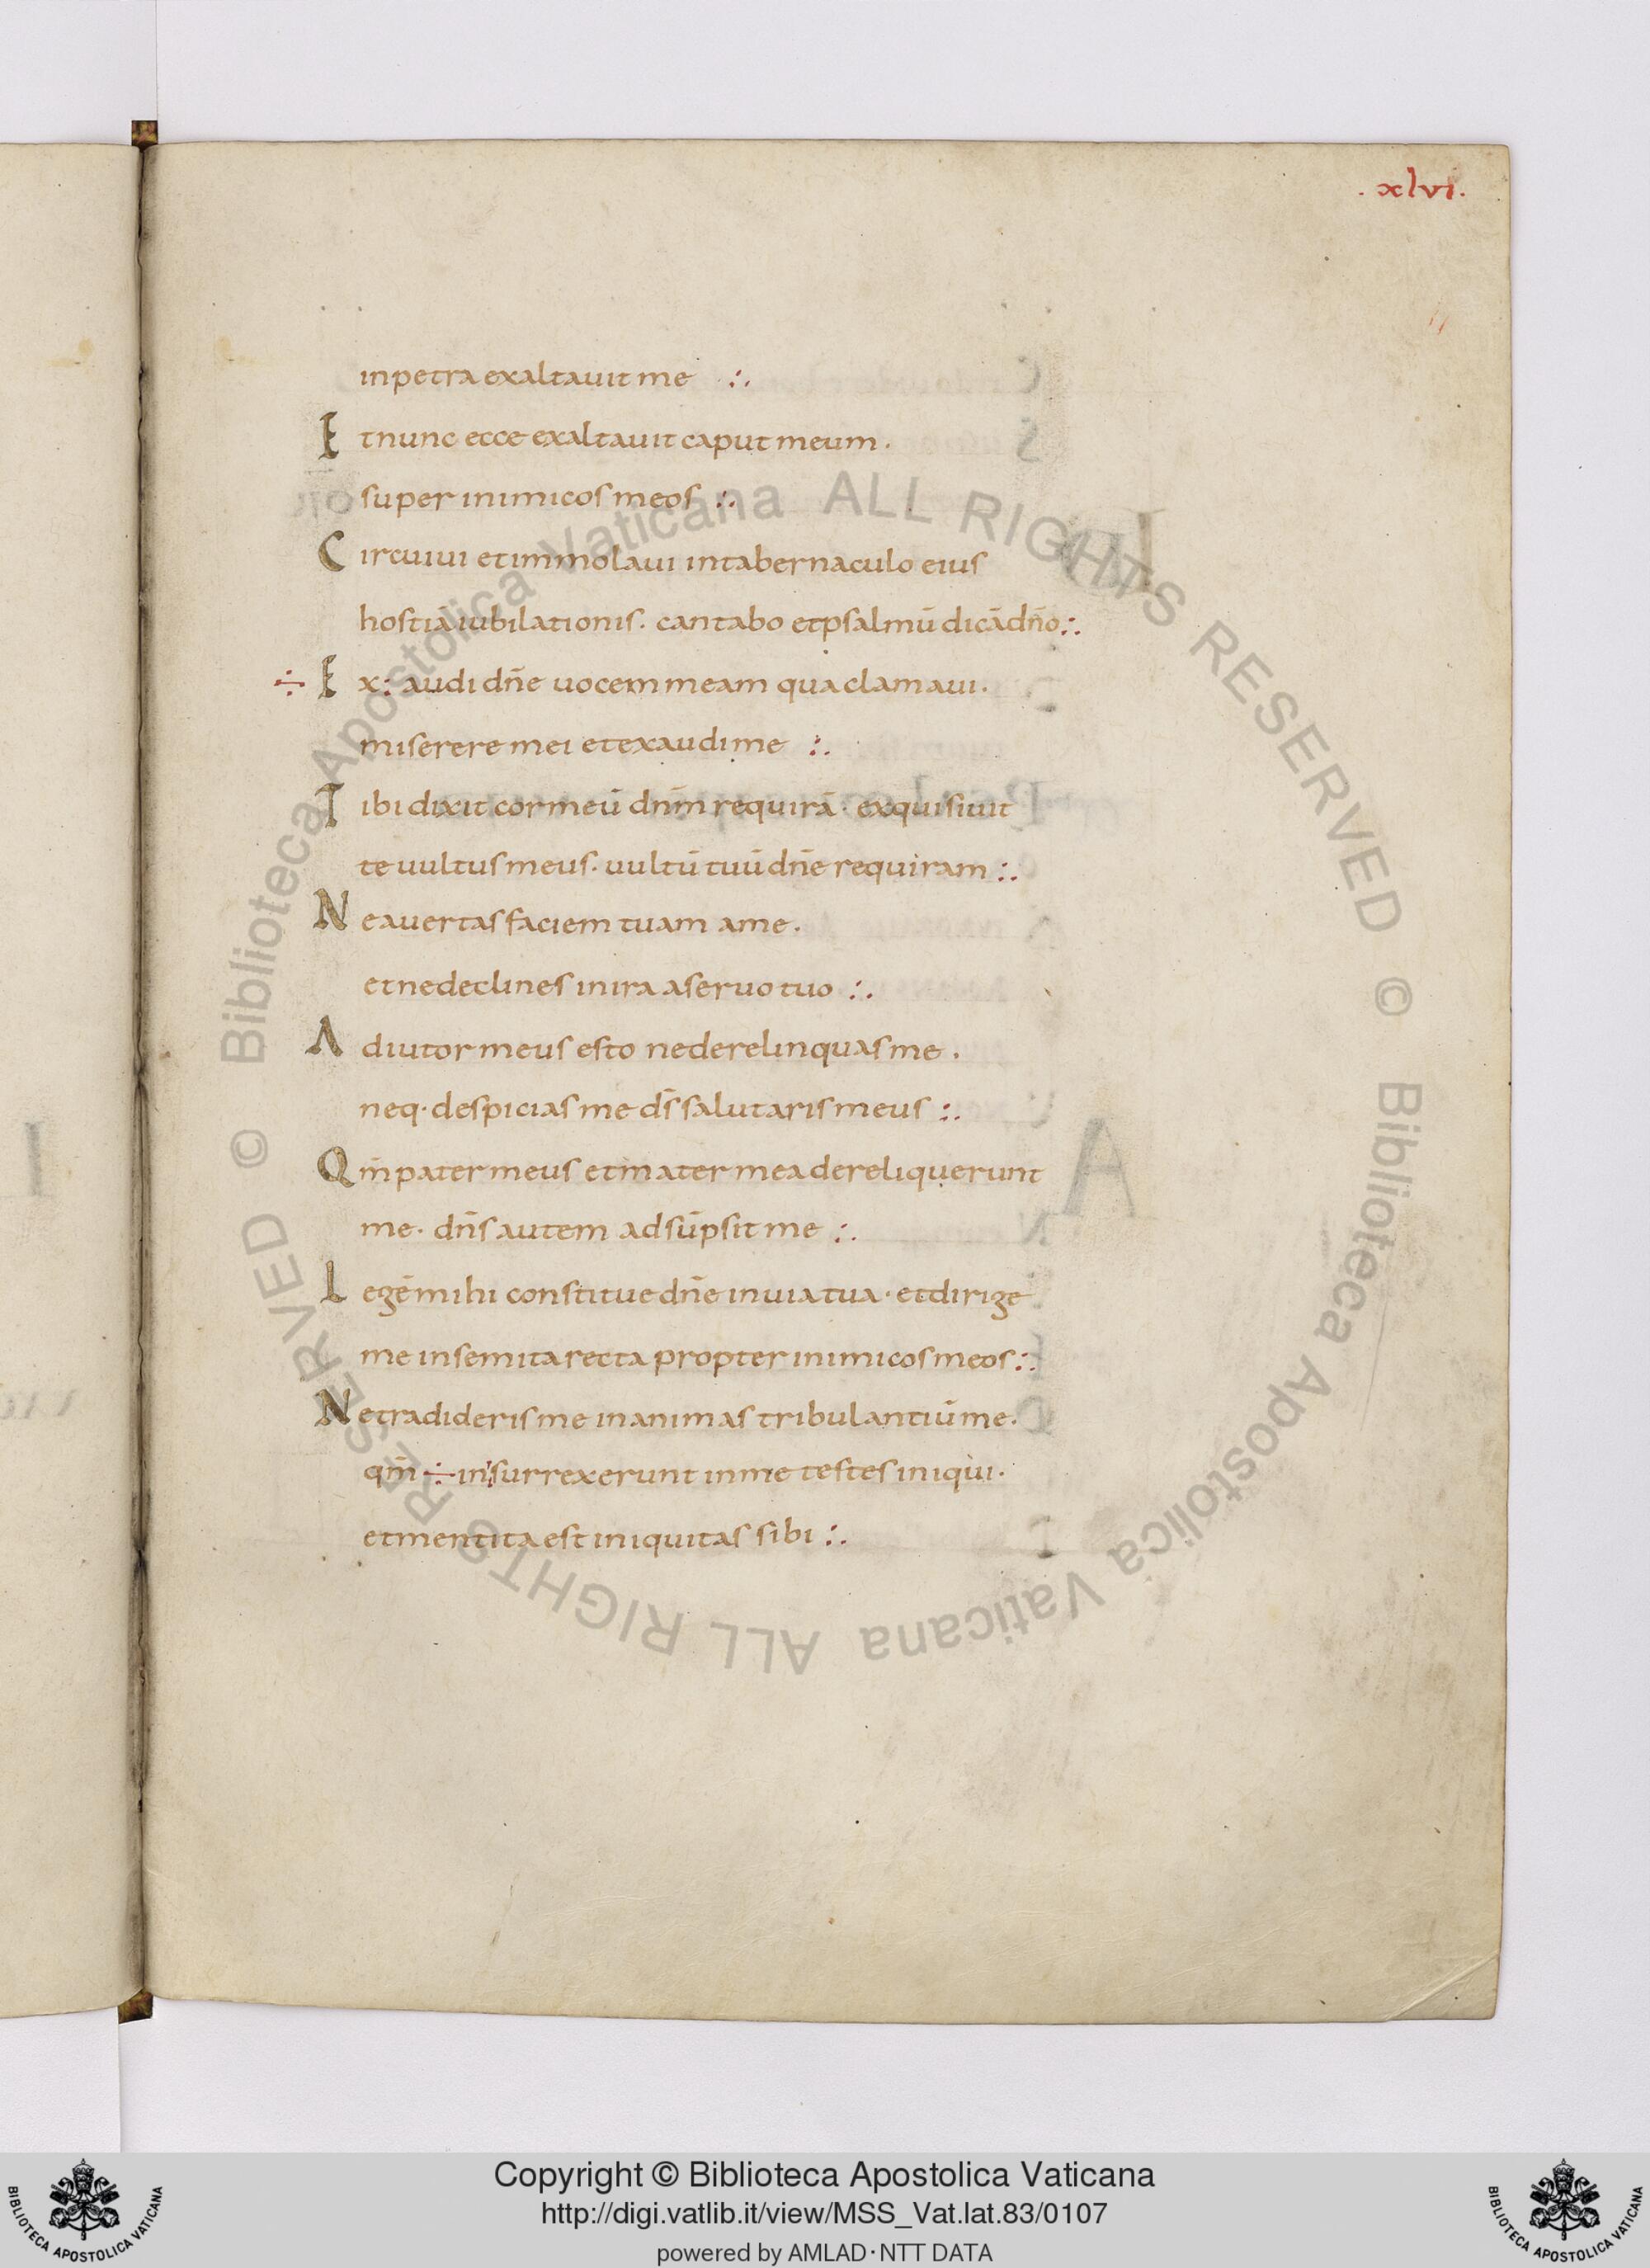 . xlvi.
inpetra exaltauit me :.
E tnunc ecce exaltauit caput meum.
super inimicos meos :.
C ircuiui etimmolaui intabernaculo eius
hostiā iubilationis. cantabo etpsalmū dicā dño :.
÷ E x: audi dñe uocem meam qua clamaui.
miserere mei etexaudi me :.
T ibi dixit cor meū dnm̄ requirā. exquisiuit
te uultus meus. uultū tuū dñe requiram :.
N eauertas faciem tuam ame.
etnedeclines inira aseruo tuo :.
A diutor meus esto nederelinquas me.
neq. despicias me ds̄ salutaris meus :.
Q m̄ pater meus etmater mea dereliquerunt
me. dñs autem adsūpsit me :.
L egē mihi constitue dñe inuia tua. etdirige
me insemita recta propter inimicos meos :.
N etradideris me inanimas tribulantiū me.
qm̄ ÷ insurrexerunt inme testes iniqui.
etmentita est iniquitas sibi :.
© Biblioteca Apostolica Vaticana ALL RIGHTS RESERVED
© Biblioteca Apostolica Vaticana ALL RIGHTS RESERVED
Copyright © Biblioteca Apostolica Vaticana
http://digi.vatlib.it/view/MSS_Vat.lat.83/0107
powered by AMLAD·NTT DATA
BIBLIOTECA APOSTOLICA VATICANA
BIBLIOTECA APOSTOLICA VATICANA